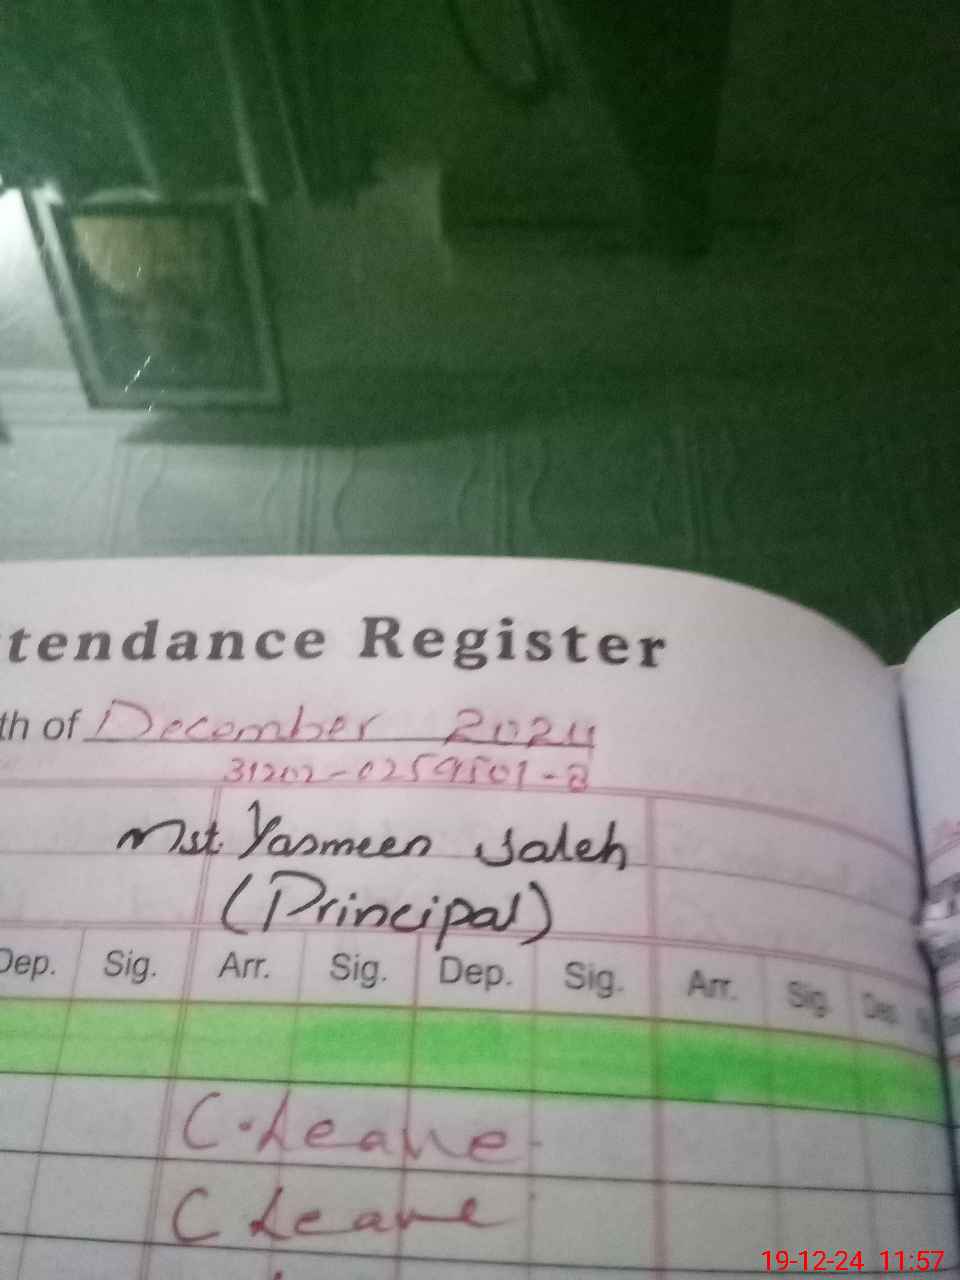 ttendance Register
th of December 2024
31202-0259501-8
Mst. Yasmeen Saleh
(Principal)
Dep. Sig. Arr. Sig. Dep. Sig. Arr. Sig. Dep.
C. Leave
C Leave
19-12-24 11:57